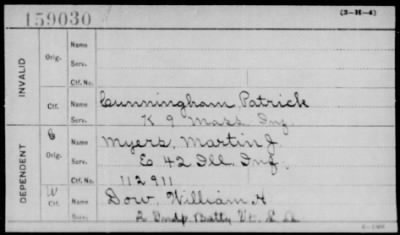 159030
(3-H-4)
INVALID
Orig.
Name
Serv.
Ctf. No.
Ctf.
Name Cunningham, Patrick
Serv. K 9 Mass Inf.
DEPENDENT
C
Orig.
Name Myers, Martin J.
Serv. E, 42 Ill. Inf.
Ctf. No. 112911
W
Ctf.
Name Dow, William H
Serv. 2 Indp. Batty Vt. L A